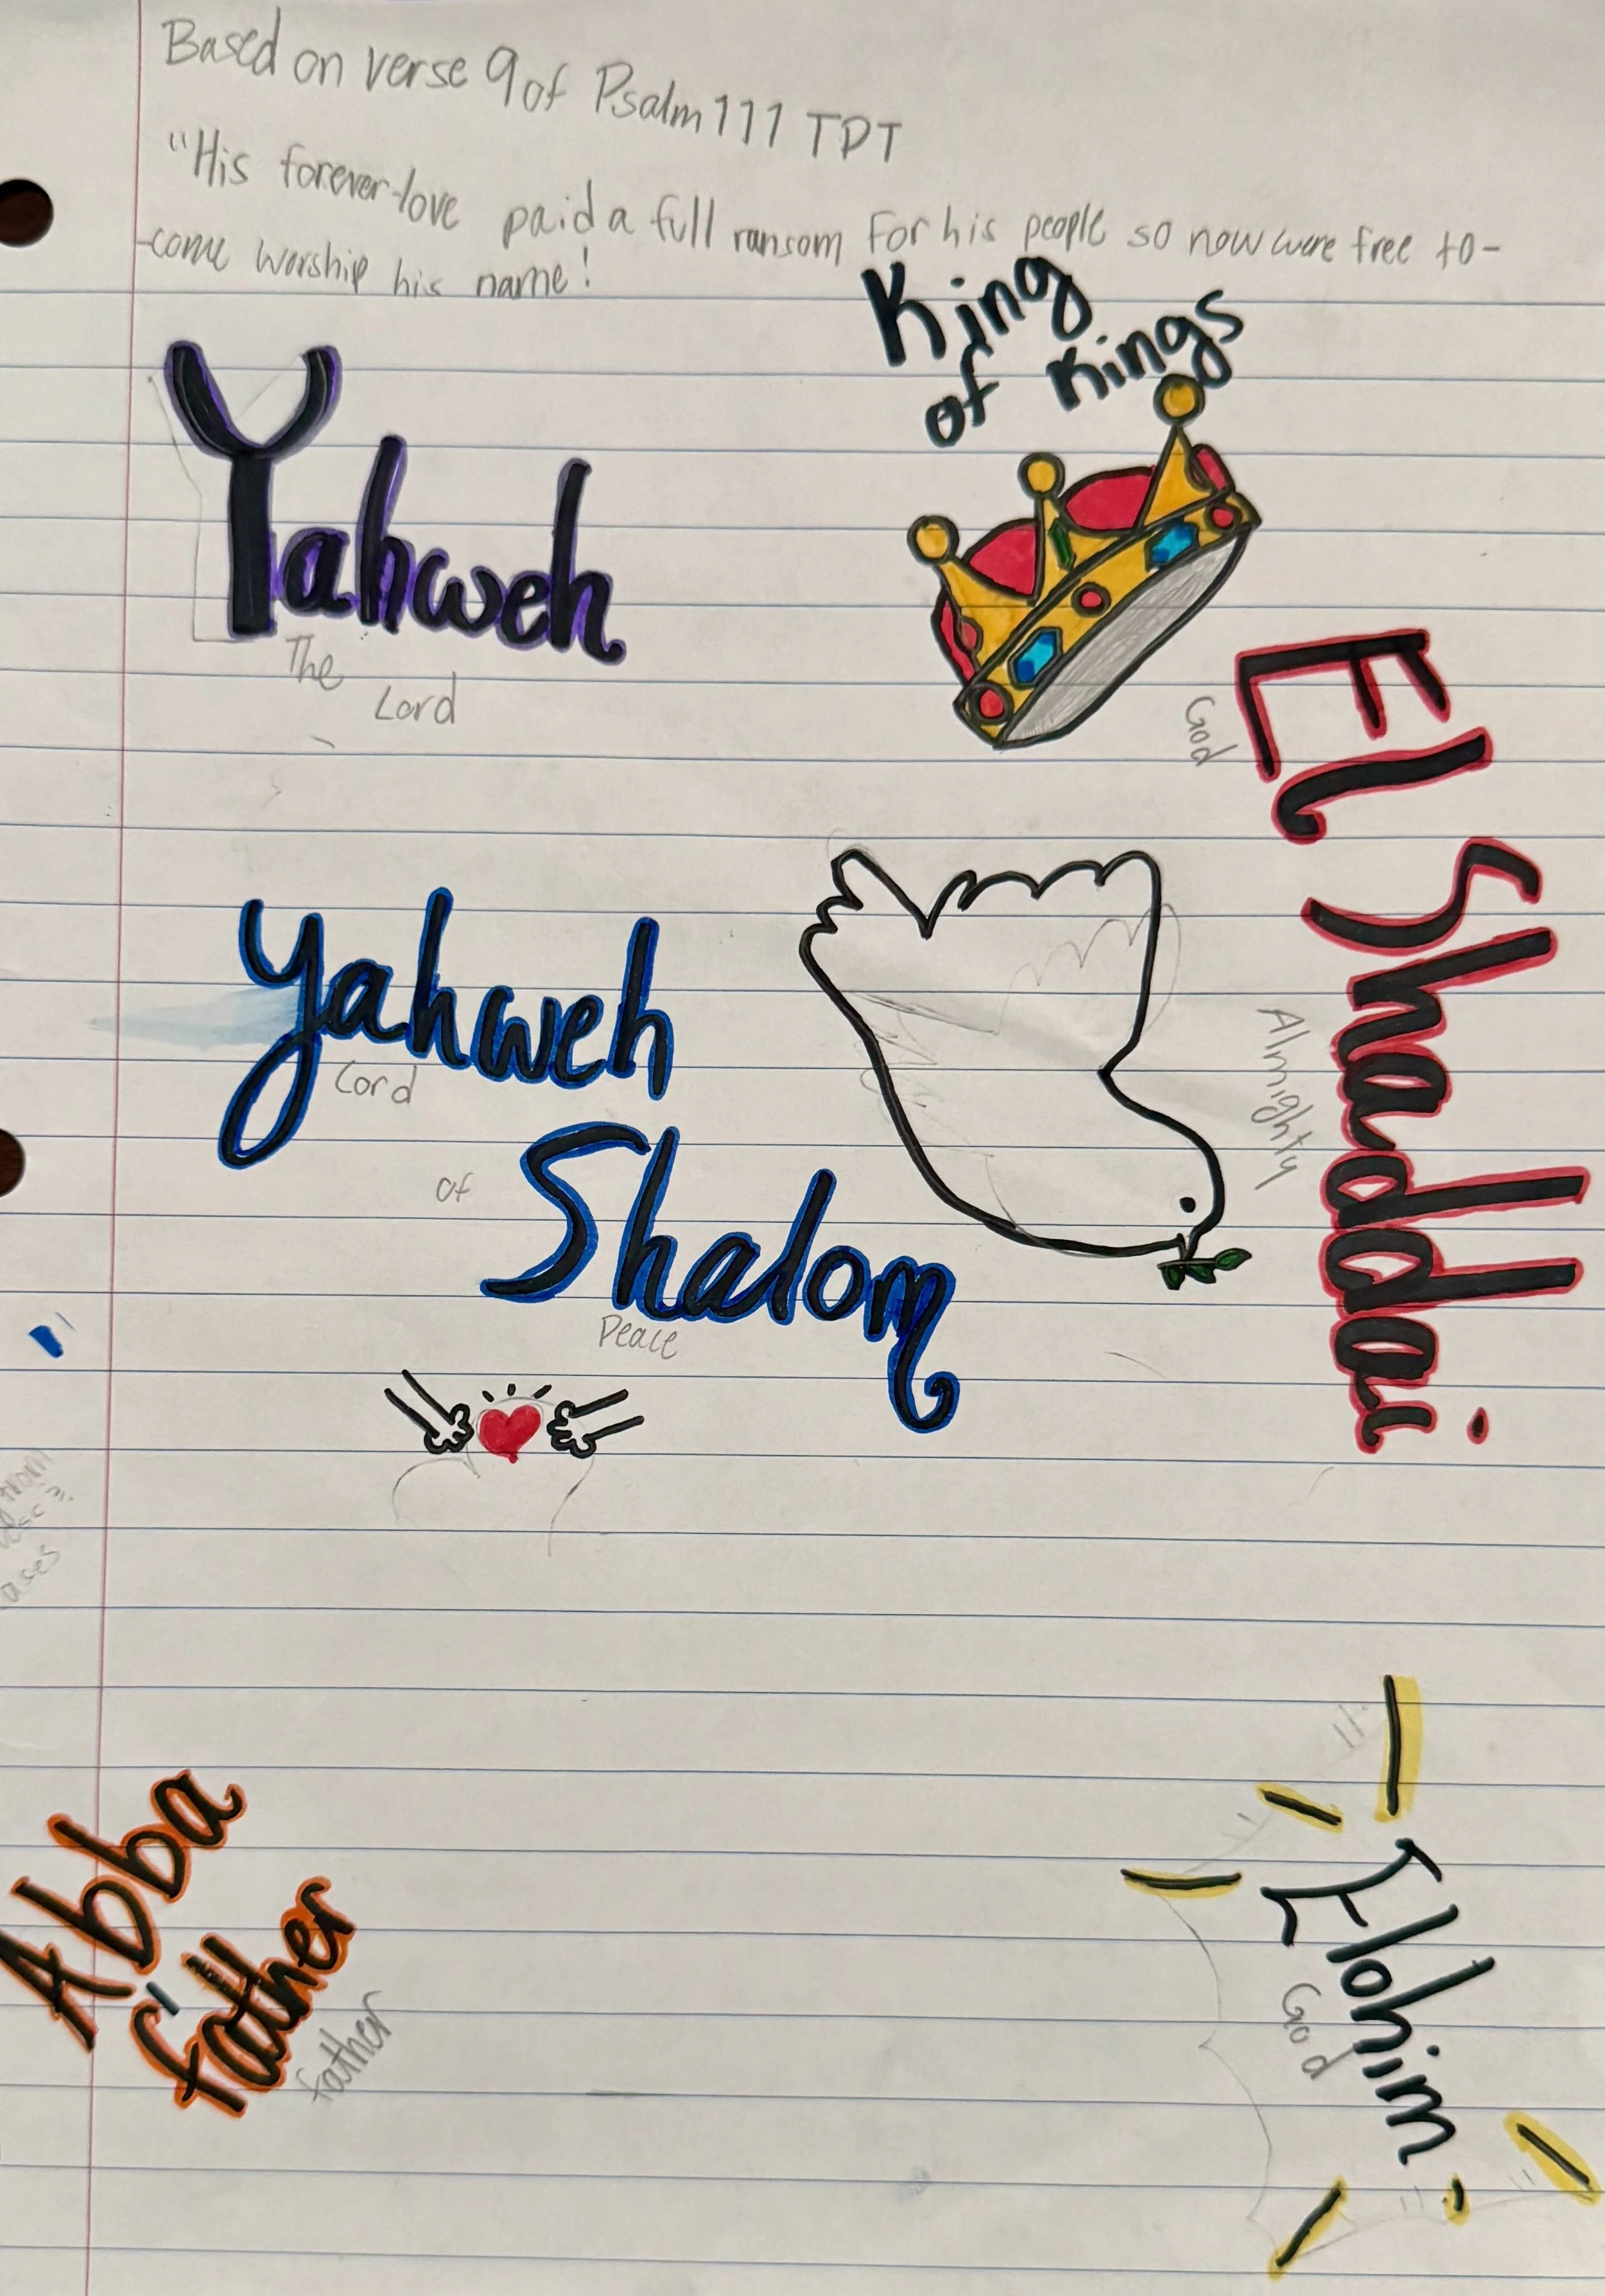 Based on verse 9 of Psalm 111 TPT
"His forever-love paid a full ransom for his people so now were free to-
-come worship his name!
King
of Kings
Yahweh
The Lord
El Shaddai
God
Almighty
Yahweh
Lord
of
Shalom
Peace
Abba
father
father
Elohim
God
ases